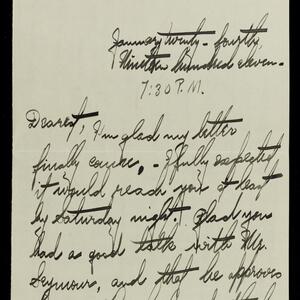 January twenty-fourth,
Nineteen hundred eleven-
7:30 P.M.
Dearest, I'm glad my letter
finally came, - I fully expected
it would reach you at least
by Saturday night. Glad you
had a good talk with Mr.
Seymour, and that he approves